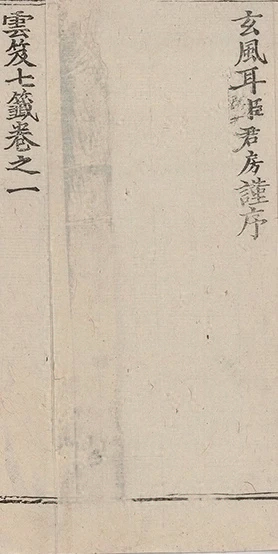 玄風耳臣君房謹序
雲笈七籤卷之一